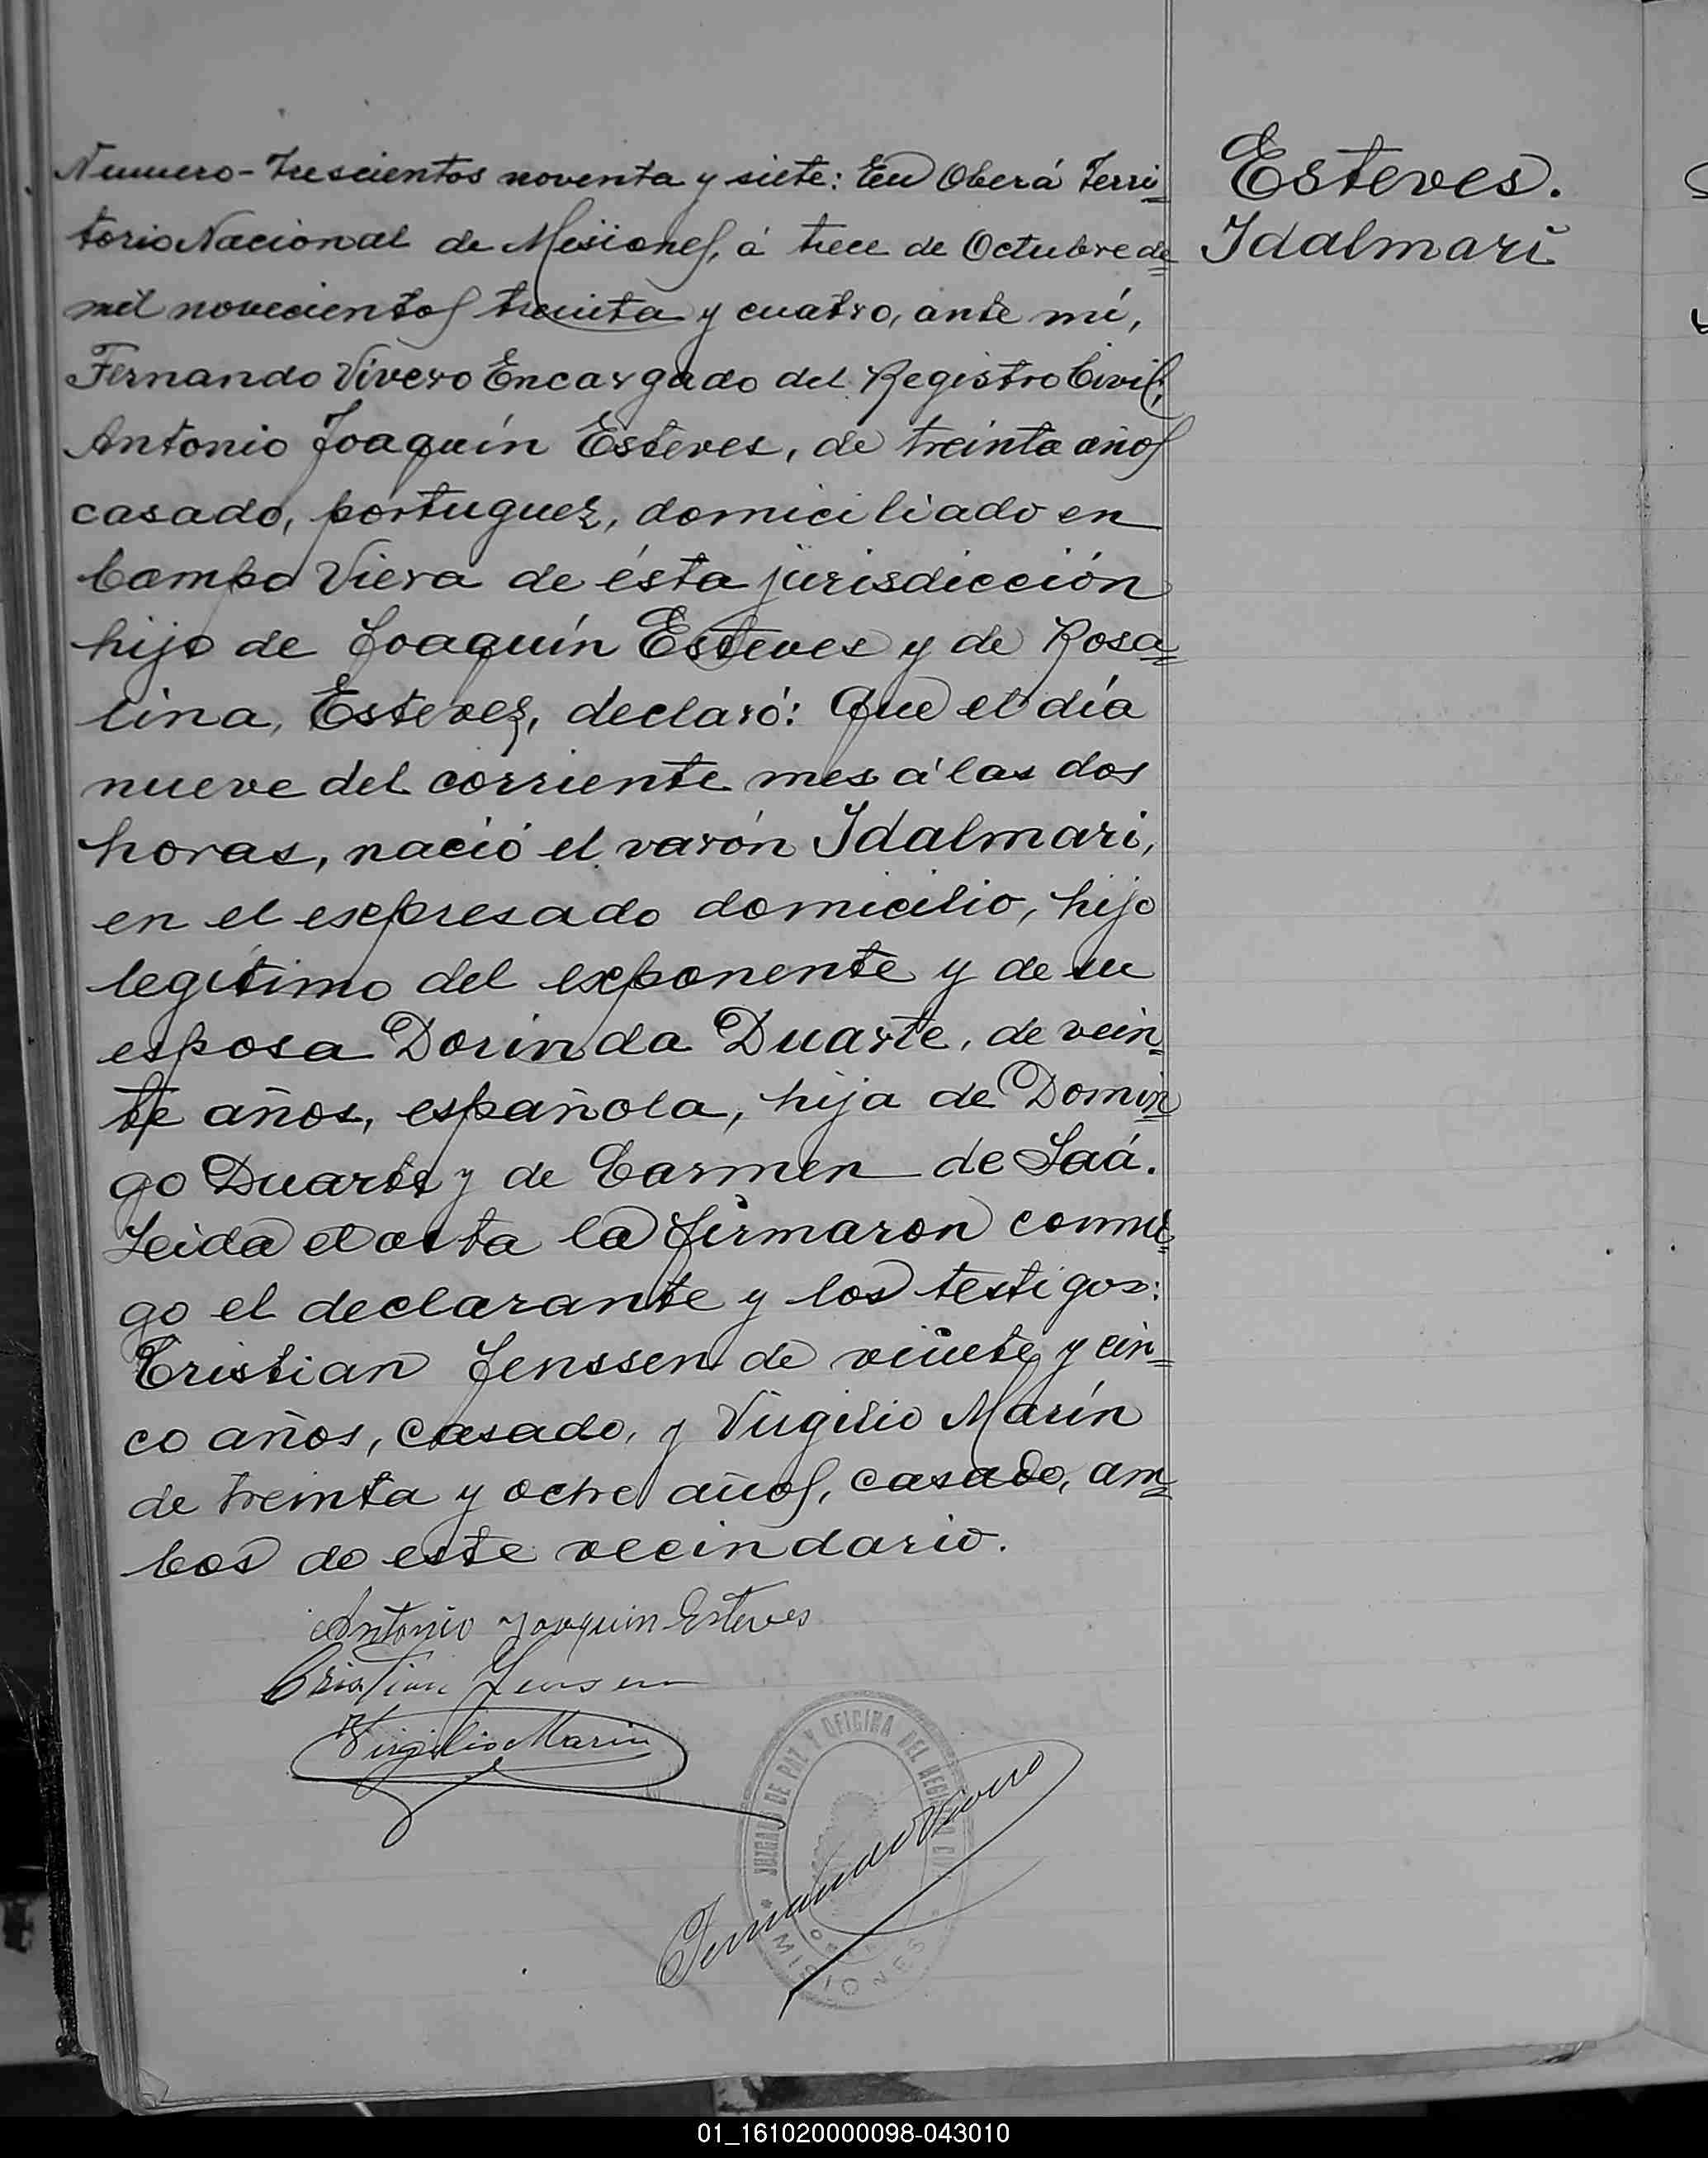 Numero-Trescientos noventa y siete: En Oberá Terri=
torio Nacional de Misiones, á trece de Octubre de=
mil novecientos treinta y cuatro, ante mí,
Fernando Vivero Encargado del Registro Civil,
Antonio Joaquín Esteves, de treinta años
casado, portuguez, domiciliado en
Campo Viera de ésta jurisdicción
hijo de Joaquín Esteves y de Rosa=
lina, Estevez, declaró: Que el día
nueve del corriente mes á las dos
horas, nació el varón Idalmari,
en el expresado domicilio, hijo
legítimo del exponente y de su
esposa Dorinda Duarte, de vein=
te años, española, hija de Domin=
go Duarte y de Carmen de Saá.
Leida el acta la firmaron conmi=
go el declarante y los testigos:
Cristian Jenssen de veinte y cin=
co años, casado, y Virgilio Marín
de treinta y ocho años, casado, am=
bos de este vecindario.
Esteves.
Idalmari
Antonio Joaquin Esteves
Cristian Jensen
Virgilio Marin
Fernando Vivero
JUZGADO DE PAZ Y OFICINA DEL REGISTRO CIVIL
MISIONES
01_161020000098-043010